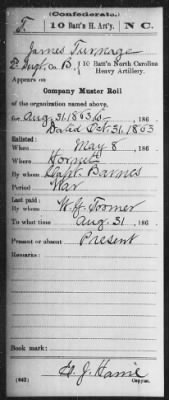 (Confederate.)
T. 10 Batt'n H. Art'y. N C.
James Turnage
Co. B. 10 Batt'n North Carolina
Heavy Artillery.
Appears on
Company Muster Roll
of the organization named above,
for Aug 31, 1863, to
Dated Oct. 31, 1863
Enlisted:
When May 8, 186
Where
By whom Capt. Barnes
Period War
Last paid:
By whom W. H. Toomer
To what time Aug. 31, 186
Present or absent Present
Remarks:
Book mark:
(642) Copyist.